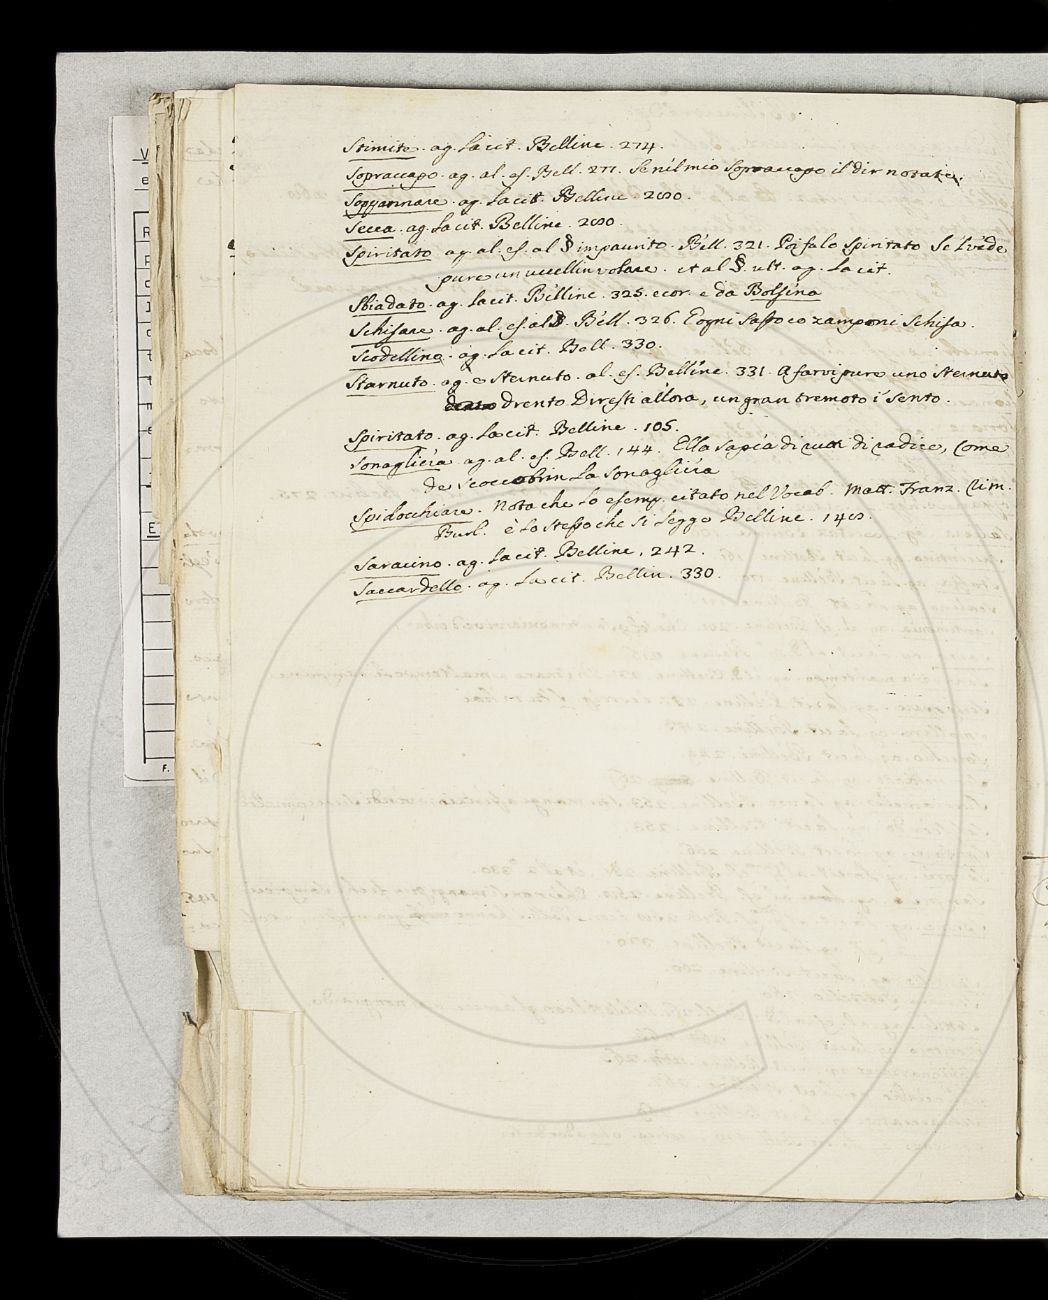 Stimite. ag. la cit. Belline. 274.
Sopraccapo. ag. al. es. Bell. 277. Se nil mio Sopraccapo il dir notate.
Sopyannare. ag. la cit. Belline 280.
Secca. ag. la cit. Belline. 280.
Spiritato ag. al. es. al § impaurito. Bell. 321. Poi falo spiritato Se l'vede
pure un uccellin volare. et al §. ult. ag. la cit.
Sbiadato. ag. la cit. Belline. 325. e cor. e da Bolsena
Schifare. ag. al. es. al §. Bell. 326. E ogni Sasso co zamponi Schifa.
Scodellino. ag. la cit. Bell. 330.
Starnuto. ag. o Sternuto. al. es. Belline. 331. A farvi pure uno Sternuto
drento Diresti allora, un gran tremoto i' Sento.
Spiritato. ag. la cit. Belline. 105.
Sonagliera ag. al. es. Bell. 144. Ella Sapea di rutti di radice, Come
de, Scoccobrin La Sonagliera
Spidocchiare. Nota che lo esemp. citato nel Vocab. Matt. Franz. Rim.
Burl. è lo Stesso che Si legge Belline. 148.
Saracino. ag. la cit. Belline. 242.
Saccardello. ag. la cit. Bellin. 330.
V
e
R
P
E
F.